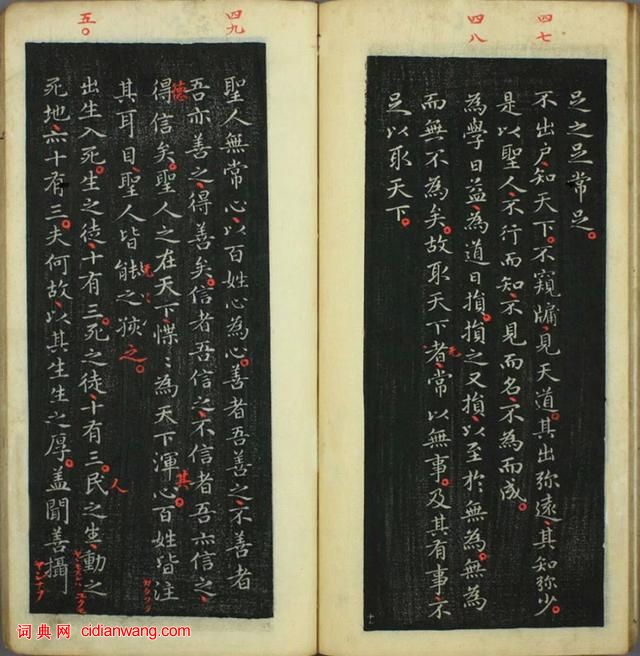 四七
四八
足之足常足。
不出户、知天下。不窺牖、見天道。其出弥遠、其知弥少。
是以聖人、不行而知、不見而名、不為而成。
為學日益、為道日損。損之又損、以至於無為。無為
而無不為矣。故取天下者、常以無事。及其有事、不
足以取天下。
四九
五〇
聖人無常心、以百姓心為心。善者吾善之、不善者
吾亦善之、得善矣。信者吾信之、不信者吾亦信之、
德
得信矣。聖人之在天下、惵〻為天下渾心。百姓皆注
其
其耳目、聖人皆之
之。
出生入死。生之徒、十有三。死之徒、十有三。民之生、動之
人
死地、亦十有三。夫何故、以其生生之厚。盖聞善攝
词典网 cidianwang.com